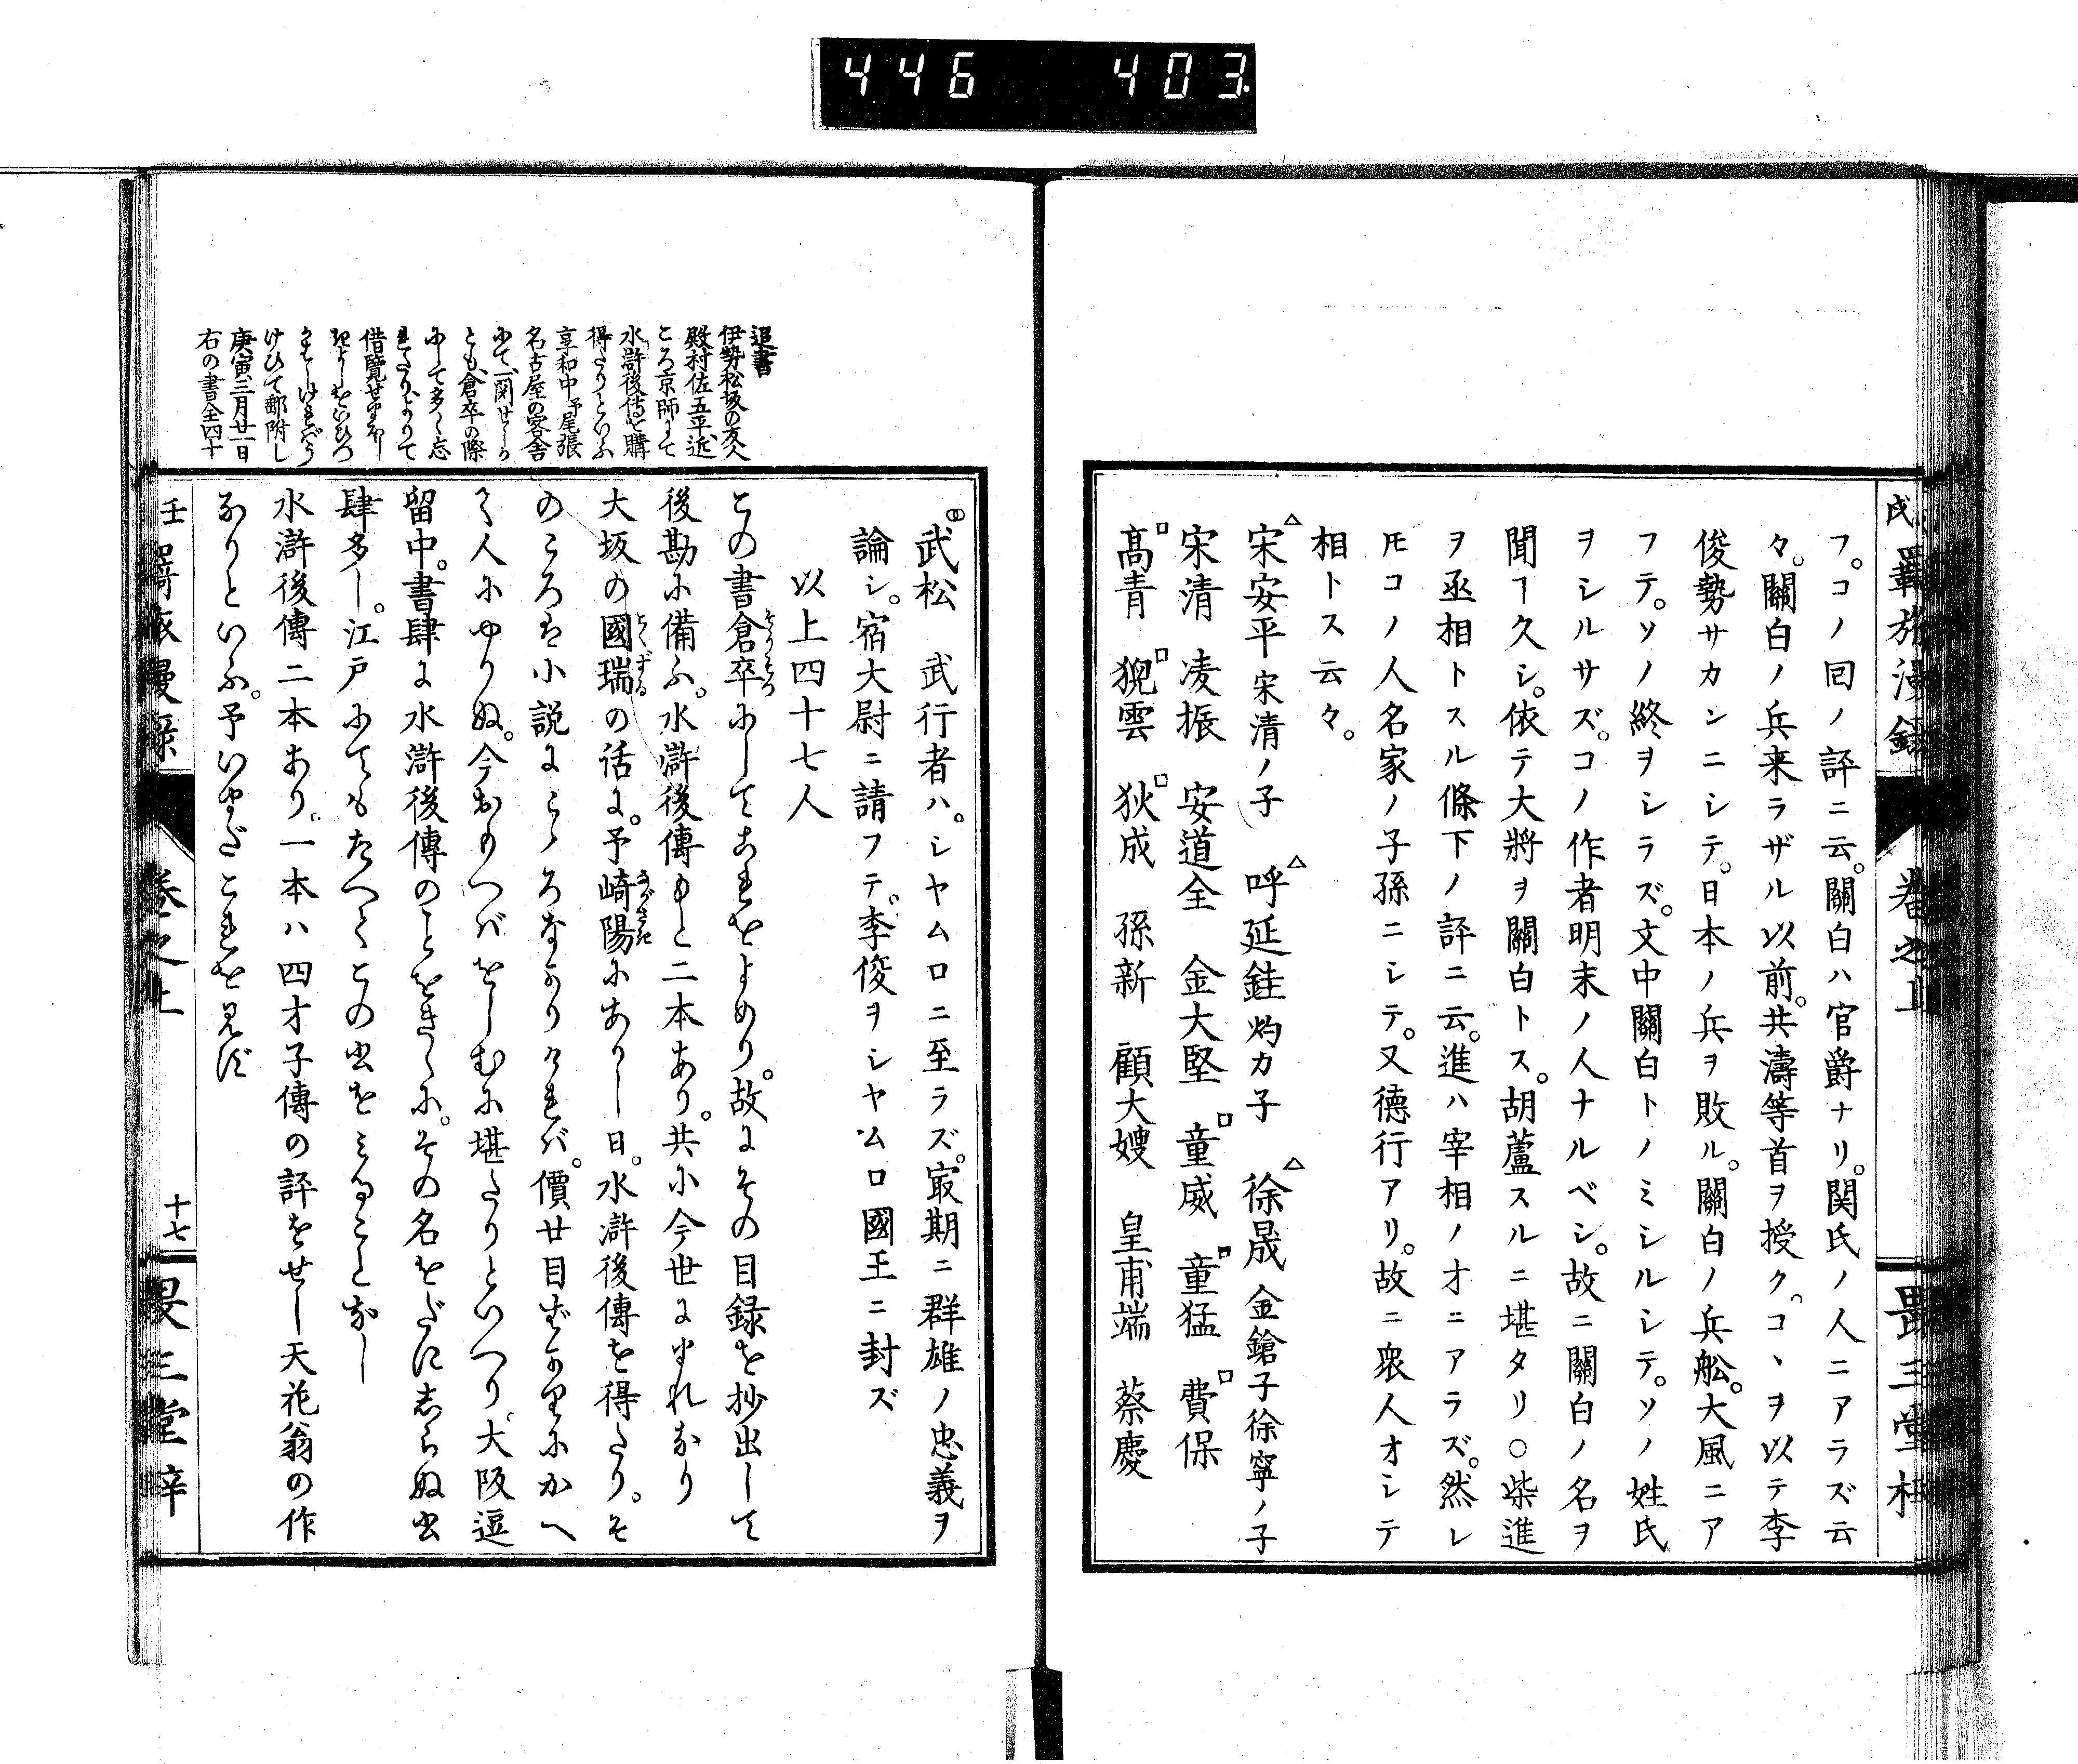 446 403
フ。コノ回ノ評ニ云。關白ハ官爵ナリ。関氏ノ人ニアラズ云
々。關白ノ兵来ラザル以前。共濤等首ヲ授ク。コヽヲ以テ李
俊勢サカンニシテ。日本ノ兵ヲ敗ル。關白ノ兵舩。大風ニア
フテ。ソノ終ヲシラズ。文中關白トノミシルシテ。ソノ姓氏
ヲシルサズ。コノ作者明末ノ人ナルベシ。故ニ關白ノ名ヲ
聞ヿ久シ。依テ大將ヲ關白トス。胡蘆スルニ堪タリ○柴進
ヲ丞相トスル條下ノ評ニ云。進ハ宰相ノオニアラズ。然レ
𪜈コノ人名家ノ子孫ニシテ。又德行アリ。故ニ衆人オシテ
相トス云々。
△宋安平宋清ノ子 △呼延鈺灼カ子 △徐晟金鎗子徐寧ノ子
宋清 凌振 安道全 金大堅 □童威 □童猛 □費保
□髙青 □猊雲 □狄成 孫新 顧大嫂 皇甫端 蔡慶
卷之上
武松 武行者ハ。シヤムロニ至ラズ。㝡期ニ群雄ノ忠義ヲ
論シ。宿大尉ニ請フテ。李俊ヲシヤムロ國王ニ封ズ
以上四十七人
この書倉卒にしてこれをよめり。故にその目録を抄出して
後勘に備ふ。水滸後傳もと二本あり。共に今世にまれなり
大坂の國瑞の話に。予崎陽にありし日。水滸後傳を得たり。そ
のころは小説にこゝろなかりければ。價廿目ばかりにかへ
て人にゆりぬ。今おもへばをしむに堪たりといへり。大阪逗
留中。書肆に水滸後傳のことをきくに。その名をだにしらぬ書
肆多し。江戸にてもたへてこの書をみることなし
水滸後傳二本あり。一本ハ四才子傳の評をせし天花翁の作
なりといふ。予いまだこれを見ず
追書
伊勢松坂の友人
殿村佐五平、近
ころ京師にて
水滸後傳を購
得たりといふ
享和中予尾張
名古屋の客舎
にて一閲せしか
とも、倉卒の際
にして多く忘
れたり、よりて
借覽せまほし
けひて郵附し
庚寅三月廿一日
右の書全四十
卷之上
十七